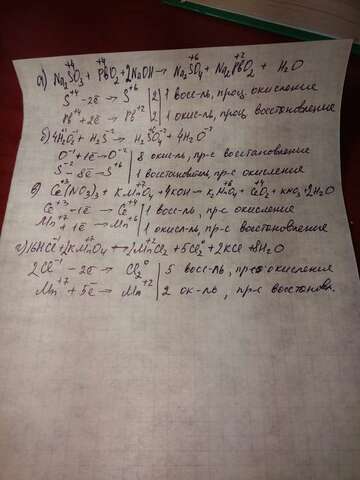 а) Na₂S⁺⁴O₃ + Pb⁺⁴O₂ + 2NaOH → Na₂S⁺⁶O₄ + Na₂Pb⁺²O₂ + H₂O
S⁺⁴ - 2ē → S⁺⁶ | 2 | 1 восс-ль, проц. окисление
Pb⁺⁴ + 2ē → Pb⁺² | 2 | 1 окис-ль, проц. восстановление
б) 4H₂O₂⁻¹ + H₂S⁻² → H₂S⁺⁶O₄ + 4H₂O⁻²
O⁻¹ + 1ē → O⁻² | 8 окис-ль, пр-с восстановление
S⁻² - 8ē → S⁺⁶ | 1 восстановит, пр-с окисления
в) Ce⁺³(NO₃)₃ + KMn⁺⁷O₄ + 4KOH → K₂Mn⁺⁶O₄ + Ce⁺⁴O₂ + KNO₃ + 2H₂O
Ce⁺³ - 1ē → Ce⁺⁴ | 1 восс-ль, пр-с окисления
Mn⁺⁷ + 1ē → Mn⁺⁶ | 1 окисл-ль, пр-с восстановления
г) 16HCl⁻¹ + 2KMn⁺⁷O₄ → 2MnCl₂ + 5Cl₂⁰ + 2KCl + 8H₂O
2Cl⁻¹ - 2ē → Cl₂⁰ | 5 восс-ль, пр-с окисления
Mn⁺⁷ + 5ē → Mn⁺² | 2 ок-ль, пр-с восстановл.